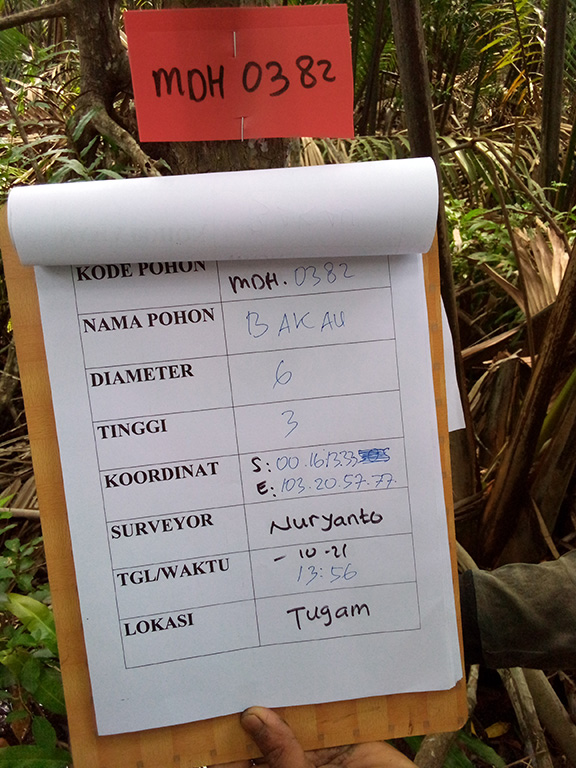 MDH 0382
KODE POHON MDH. 0382
NAMA POHON BAKAU
DIAMETER 6
TINGGI 3
KOORDINAT S: 00.16.13.33
E: 103.20.57.77.
SURVEYOR Nuryanto
TGL/WAKTU - 10-21
13:56
LOKASI Tugam